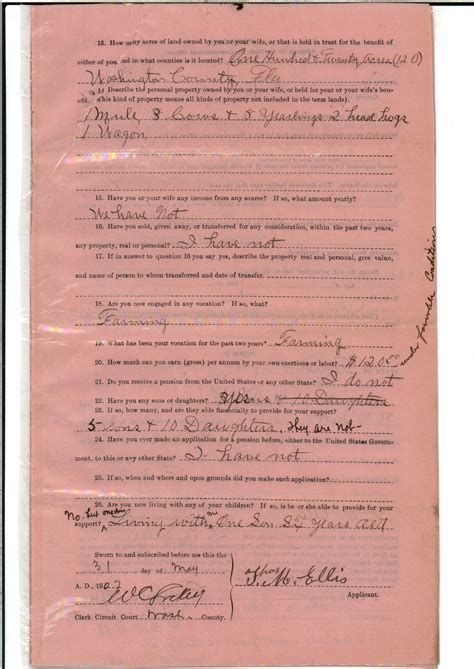 13. How many acres of land owned by you or your wife, or that is held in trust for the benefit of
either of you and in what counties is it located? One Hundred & Twenty acres (120)
Washington County, Fla
14. Describe the personal property owned by you or your wife, or held for your or your wife's ben-
efit. (This kind of property means all kinds of property not included in the term lands).
1 Mule 8 Cows & 5 Yearlings 2 head hogs
1 Wagon
15. Have you or your wife any income from any source? If so, what amount yearly?
We have Not
16. Have you sold, given away, or transferred for any consideration, within the past two years,
any property, real or personal? I have not
17. If in answer to question 16 you say yes, describe the property real and personal, give value,
and name of person to whom transferred and date of transfer.
18. Are you now engaged in any vocation? If so, what?
Farming
19. What has been your vocation for the past two years? Farming
20. How much can you earn (gross) per annum by your own exertions or labor? $120.00
under favorable Conditions
21. Do you receive a pension from the United States or any other State? I do not
22. Have you any sons or daughters? yes & 10 Daughters
23. If so, how many, and are they able financially to provide for your support?
5 Sons & 10 Daughters, They are not
24. Have you ever made an application for a pension before, either to the United States Govern-
ment, to this or any other State? I have not
25. If so, when and where and upon grounds did you make such application?
26. Are you now living with any of your children? If so, is he or she able to provide for your
No. but one
support? Living with me One Son Six Years old
Sworn to and subscribed before me this the
31 day of May
A. D., 1907
Thos M. Ellis
Applicant.
Clerk Circuit Court Wash. County.